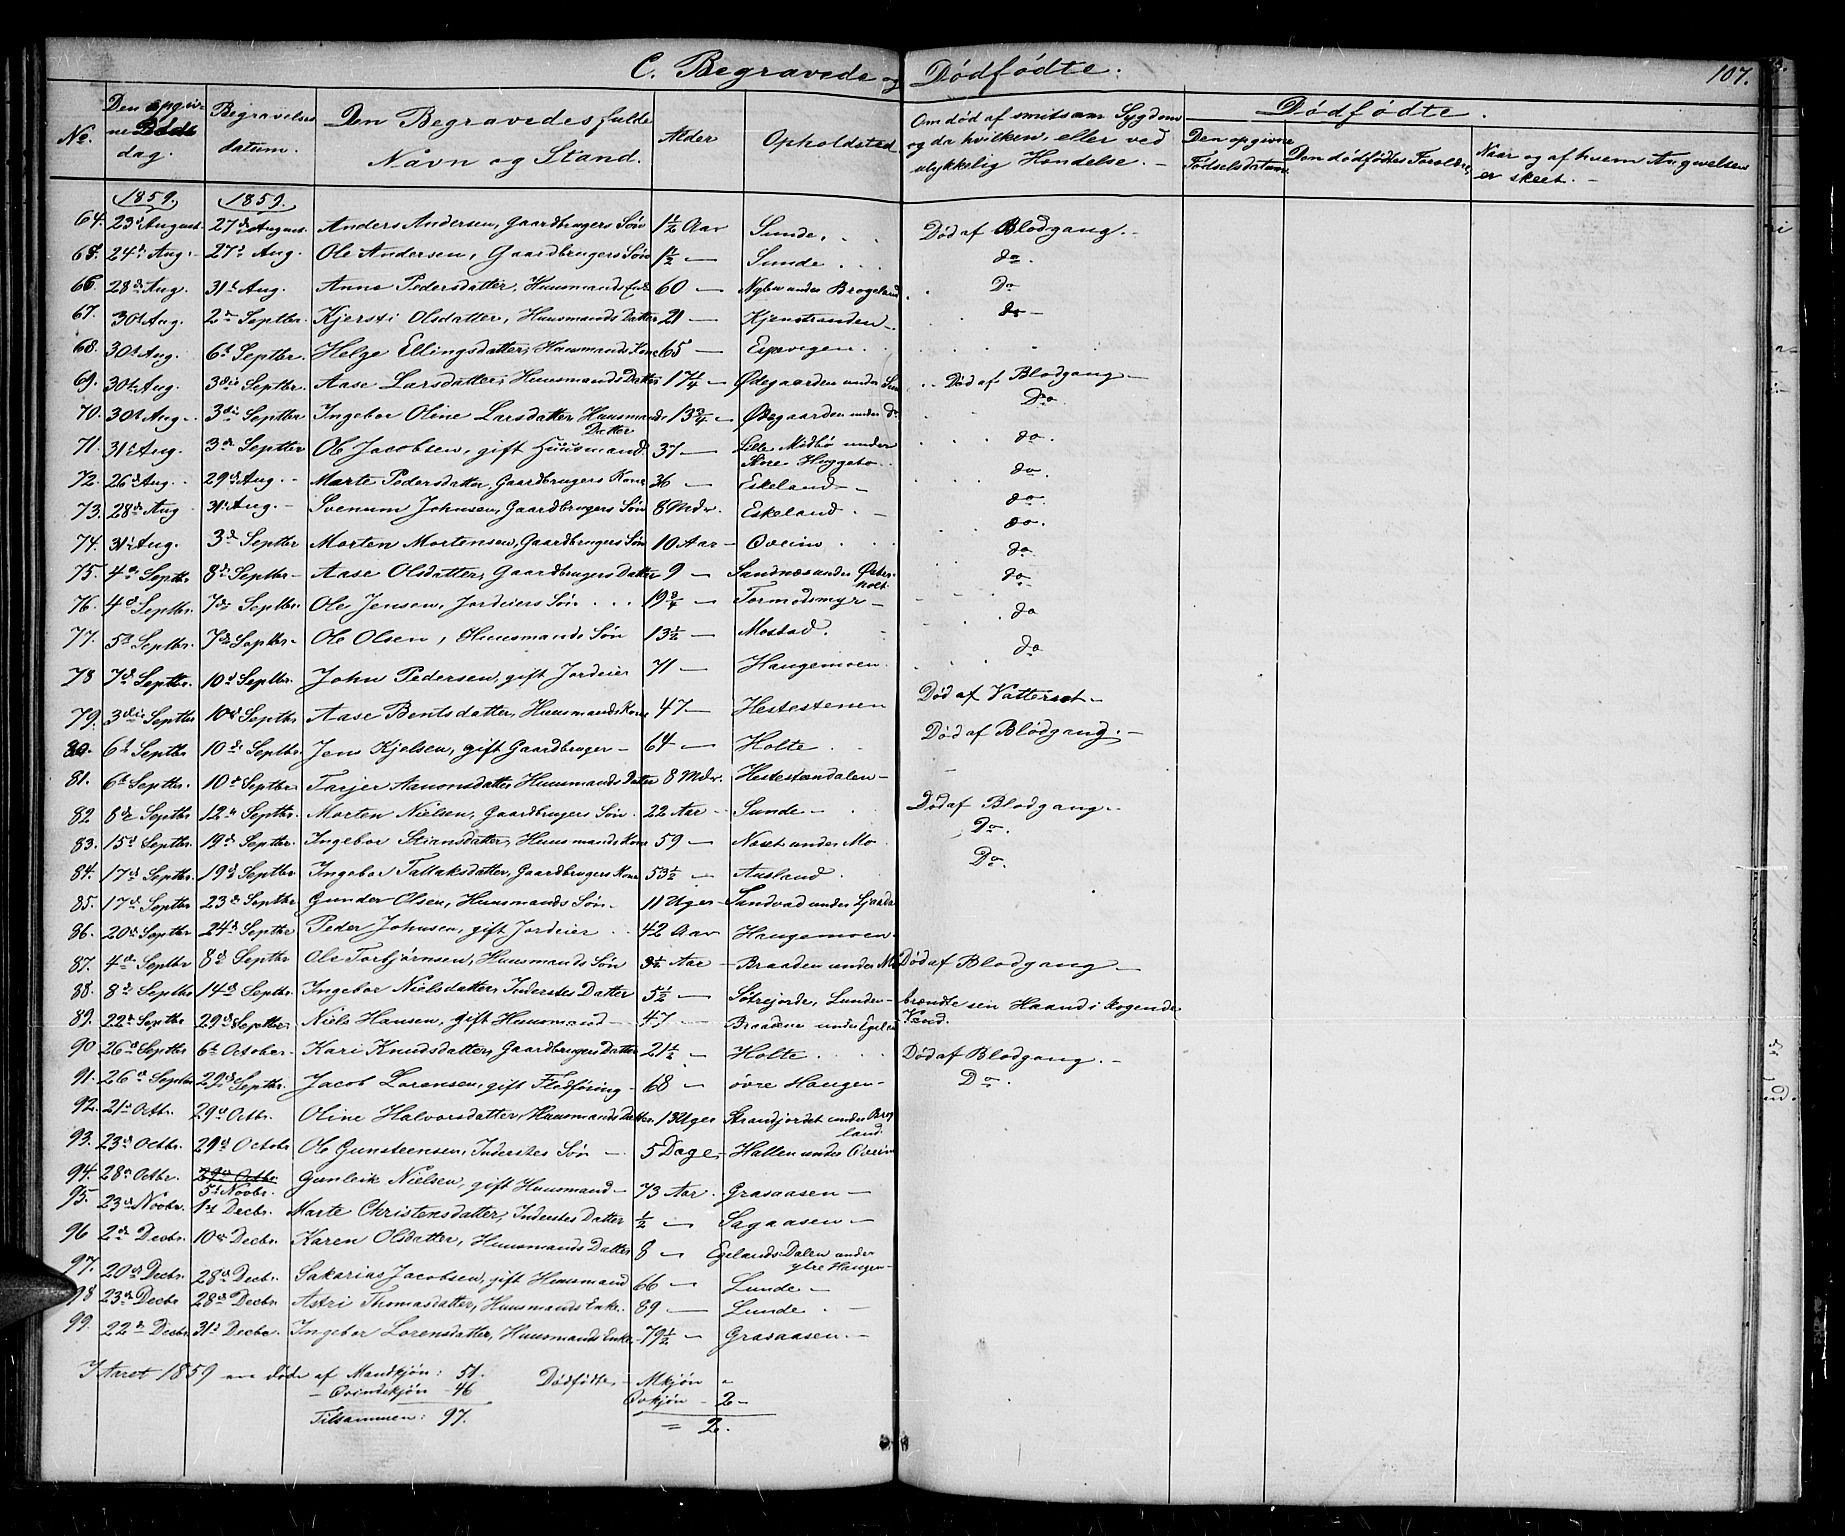 C. Begravede og Dødfødte.
107.
No. | Den opgivne Døds dag. | Begravelses datum. | Den Begravedes fulde Navn og Stand. | Alder | Opholdsted | Om død af smitsom Sygdom og da hvilken, eller ved ulykkelig Hændelse. | Dødfødte. Den opgivne Fødselsdatum. | Den dødfødtes Forældre, | Naar og af hvem Angivelsen er skeet.
1859. 1859.
64. 23de August 27de August. Anders Andersen, Gaardbrugers Søn 1½ Aar Sunde. Død af Blodgang.
65. 24de Aug. 27de Aug. Ole Andersen, Gaardbrugers Søn 1½ — Sunde do.
66. 28de Aug. 31te Aug. Anne Pedersdatter, Huusmands Enke 60 — under Brogeland Do
67. 30te Aug. 2den Septbr. Kjersti Olsdatter, Huusmands Datter 21 — Kjenstranden do
68. 30te Aug. 6te Septbr. Helge Ellingsdatter, Huusmands Kone 65 — Espevigen
69. 30te Aug. 3die Septbr. Aase Larsdatter, Huusmands Datter 17¼ — Ødegaarden under Død af Blodgang —
70. 30te Aug. 3die Septbr Ingebor Oline Larsdatter Huusmands Datter 13¾ — Ødegaarden under do Do.
71. 31te Aug. 3die Septbr Ole Jacobsen, gift Huusmand 37 — Lille Midbø under Store Huggebo do.
72. 26de Aug. 29de Aug. Marte Pedersdatter, Gaardbrugers Kone 36 — Eskeland do.
73. 28de Aug 31te Aug. Svenum Johnsen, Gaardbrugers Søn 8 Mdr. Eskeland. do.
74. 31te Aug. 3die Septbr Morten Mortensen, Gaardbrugers Søn 10 Aar Oveim do.
75. 4de Septbr 8de Septbr Aase Olsdatter, Gaardbrugers Datter 9 — Sandnæs under Østerholt do
76. 4de Septbr. 7de Septbr. Ole Jensen, Jordeiers Søn 19¾ — Tormodsmyr do
77. 5te Septbr. 7de Septbr. Ole Olsen, Huusmands Søn 13½ — Mostad. do
78 7de Septbr. 10de Septbr. John Pedersen, gift Jordeier 71 — Haugemoen do
79. 3die Septbr 10de Septbr Aase Bentsdatter, Huusmands Kone 47 — Hestestenen Død af Vattersot
80. 6te Septbr 10de Septbr. Jens Kjelsen, gift Gaardbruger 64 — Holte Død af Blodgang.
81. 6te Septbr. 10de Septbr Tarjer Aanonsdatter Huusmands Datter 8 Mdr. Hestestendalen —
82. 8de Septbr 12te Septbr. Morten Nielsen, Gaardbrugers Søn. 22 Aar — Sunde Død af Blodgang.
83. 15de Septbr. 19de Septbr. Ingebor Stiansdatter, Huusmands Kone 59 — Neset under Mo Do.
84. 17de Septbr. 19de Septbr Ingebor Tallaksdatter, Gaardbrugers Kone 53½ — Ausland Do.
85. 17de Septbr 23de Septbr Gunder Olsen, Huusmands Søn. 11 Uger Sandvad under
86. 20de Septbr 24de Septbr Peder Johnsen, gift Jordeier 42 Aar Haugemoen
87. 4de Septbr 8de Septbr Ole Torbjørnsen, Huusmands Søn 3½ Aar — Braaden under Mo Død af Blodgang
88. 8de Septbr 14de Septbr. Ingebor Nielsdatter Inderstes Datter 5½ — Lunden brændte sin Haand i kogende Vand.
89. 22de Septbr 29de Septbr. Niels Hansen, gift Huusmand 47 — Braadene under
90 26de Septbr 6te October Kari Knudsdatter, Gaardbrugers Datter 21½ — Holte Død af Blodgang.
91. 26de Septbr 29de Septbr. Jacob Lorensen, gift Flødføring 68 — øvre Haugen Do.
92. 21de Octbr. 29de Octbr. Oline Halvorsdatter, Huusmands Datter. 13 Uger Strandjordet under Brogland
93. 23de Octbr. 29de Octobr Ole Gunsteensen, Inderstes Søn 5 Dage Hallen under Oveim
94. 28de Octbr. 29de Octbr. 5te Novbr. Gunleik Nielsen, gift Huusmand 73 Aar. Grasaasen
95. 23de Novbr. 1ste Decbr. Marte Christensdatter, Inderstes Datter ½ — Sagaasen
96 2den Decbr. 10de Decbr. Karen Olsdatter, Huusmands Datter 8 — Egelands Dalen under ytre Haugen
97. 20de Decbr. 28de Decbr. Sakarias Jacobsen, gift Huusmand 66 — Lunde
98 23de Decbr 28de Decbr. Astri Thomasdatter, Huusmands Enke. 89 — Lunde
99. 22de Decbr. 31te Decbr. Ingebor Lorensdatter, Huusmands Enke. 79½ — Grasaasen
I Aaret 1859 ere døde af Mandkjøn: 51. Dødfødte, — Mkjøn "
— Qvindekjøn 46 Qvkjøn — 2
Tilsammen: 97. = 2.